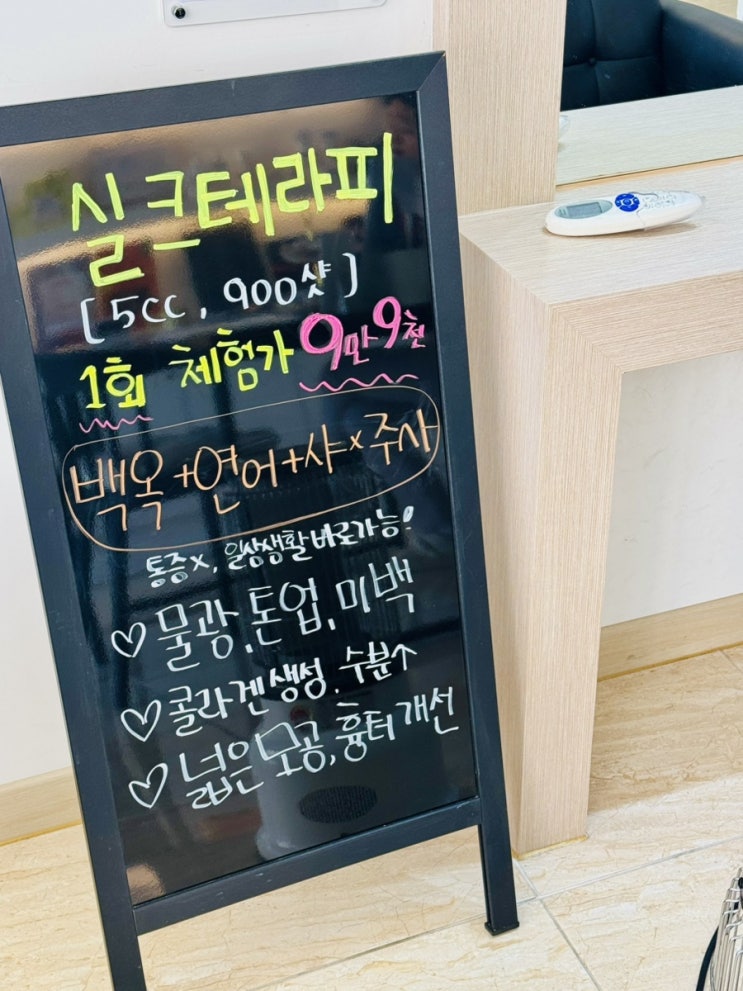 실크테라피
[5cc, 900샷]
1회 체험가 9만9천
백옥+연어+샤x주사
통증x, 일상생활바로가능!
♡ 물광, 톤업, 미백
♡ 콜라겐생성, 수분↑
♡ 넓은모공, 흉터개선